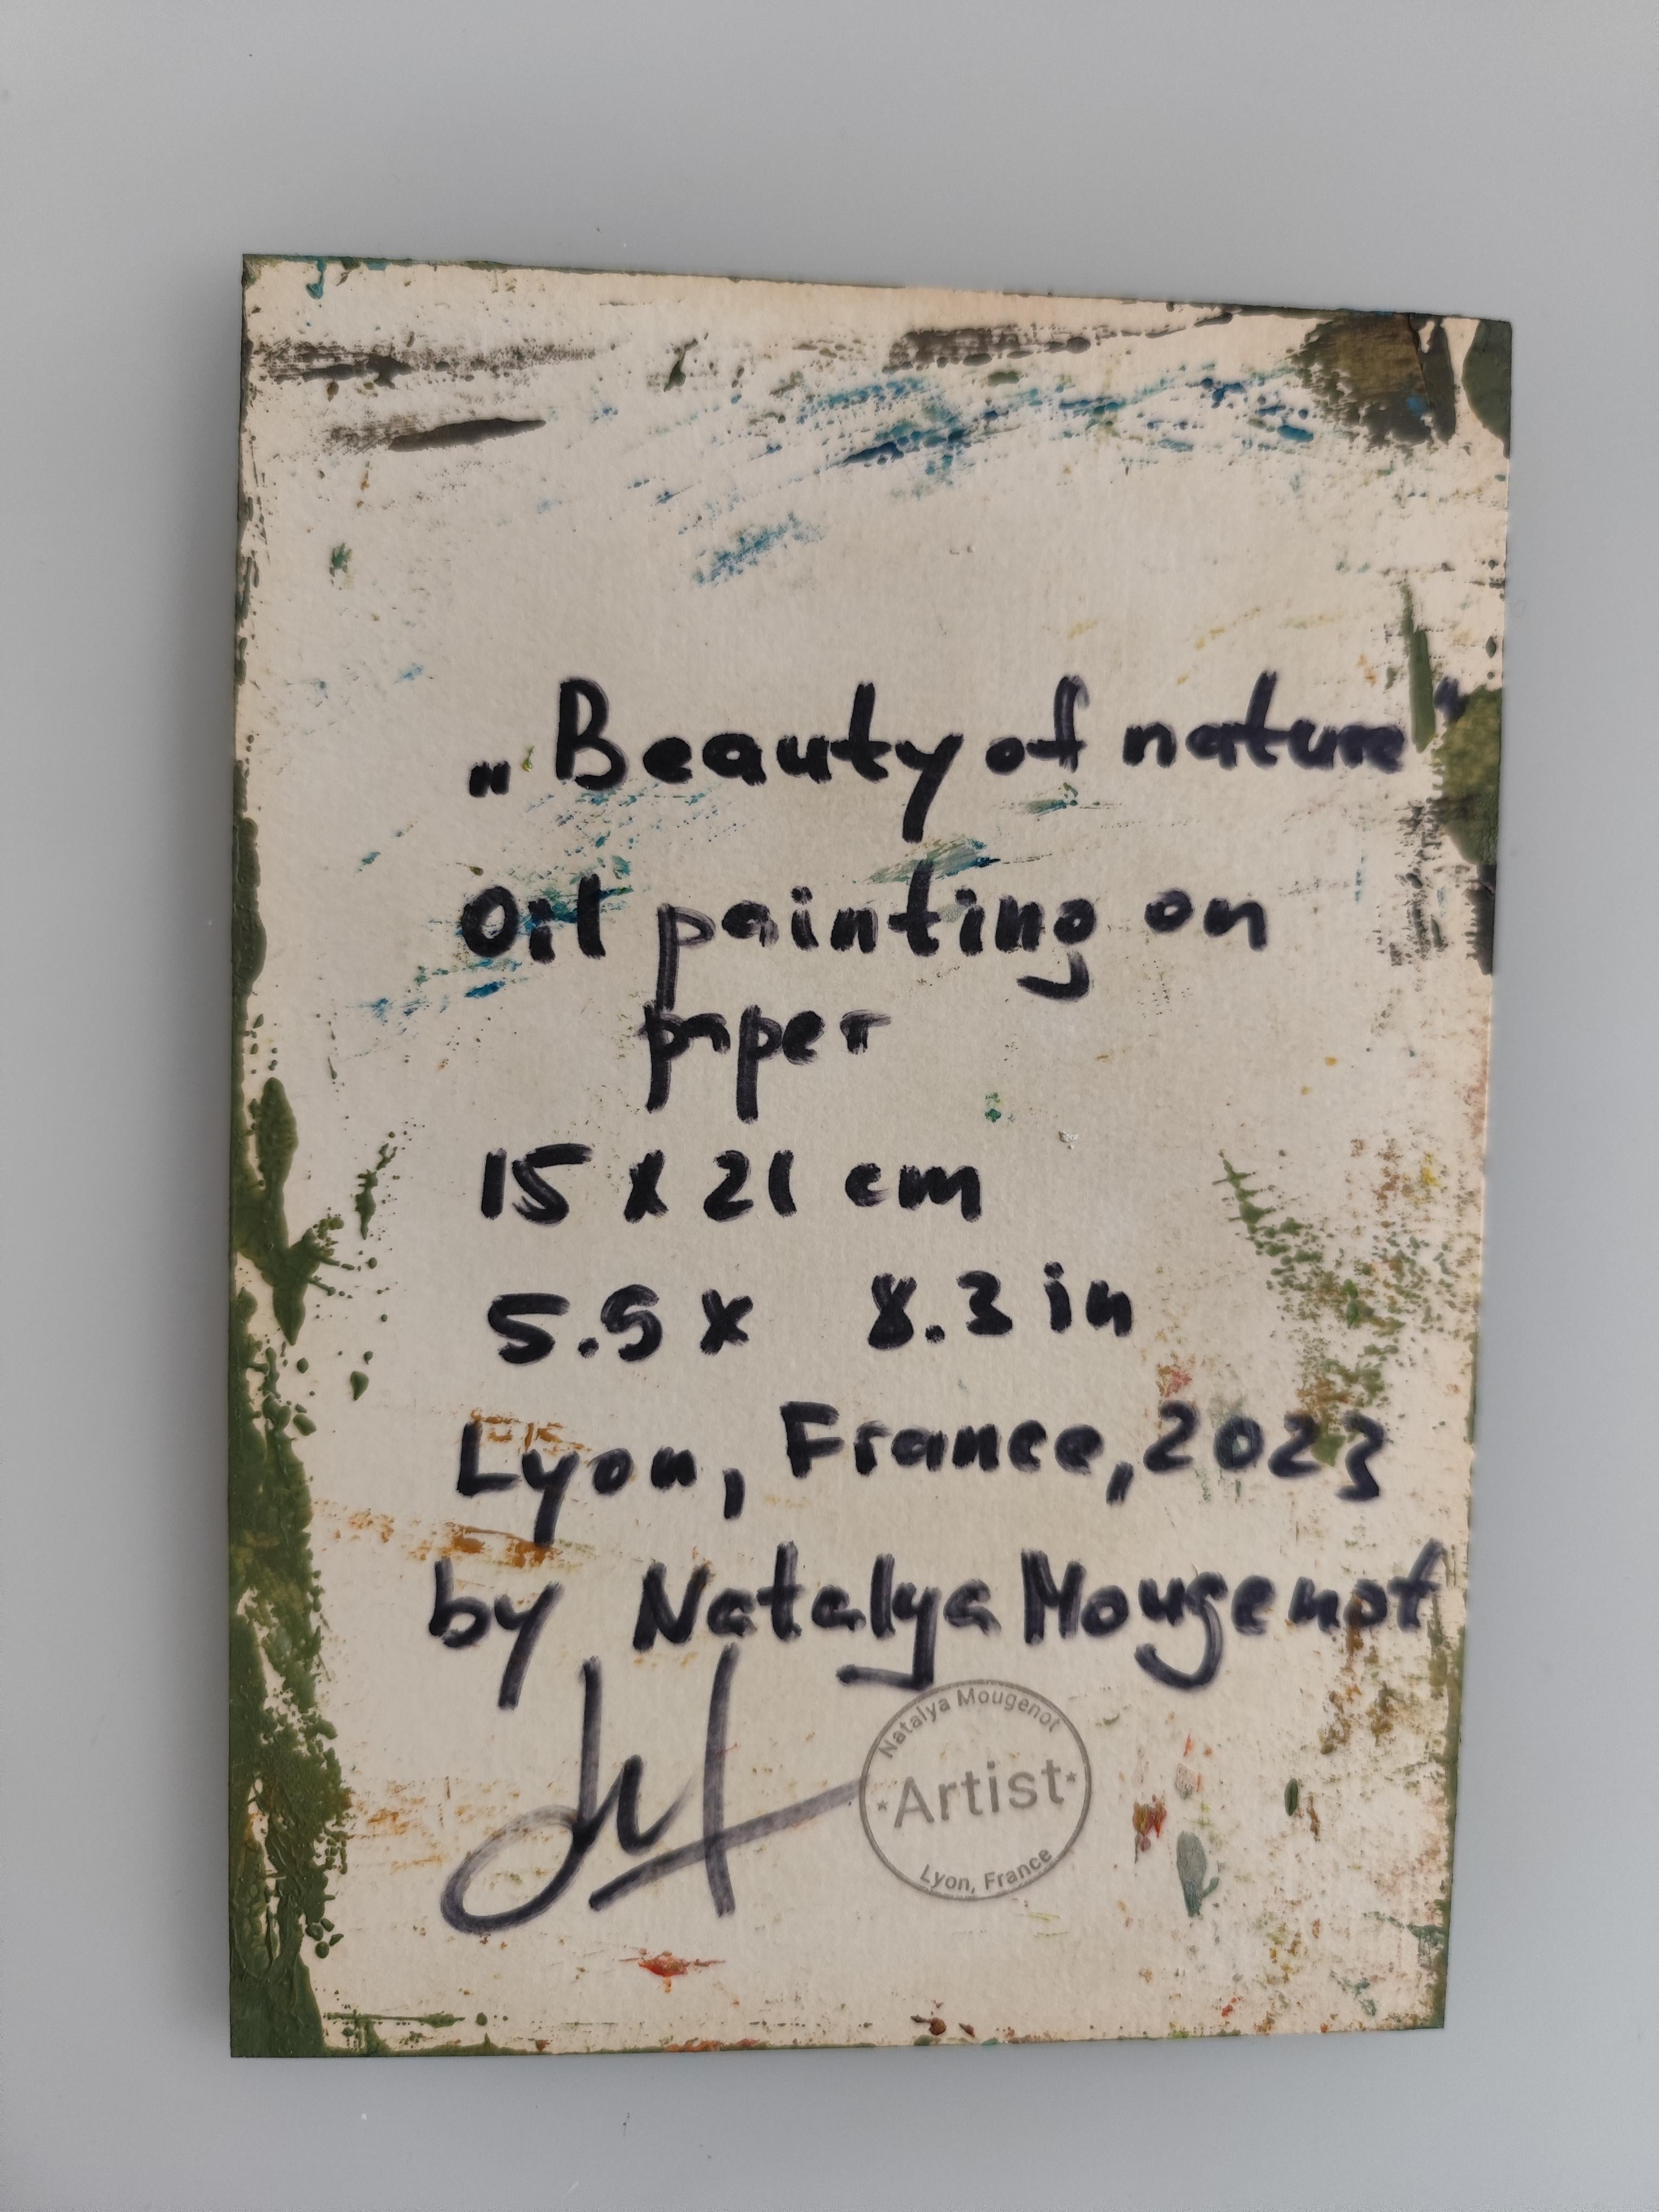 „Beauty of nature"
Oil painting on
paper
15 x 21 cm
5.9 x 8.3 in
Lyon, France, 2023
by Natalya Mougenot
Natalya Mougenot
Artist
Lyon, France